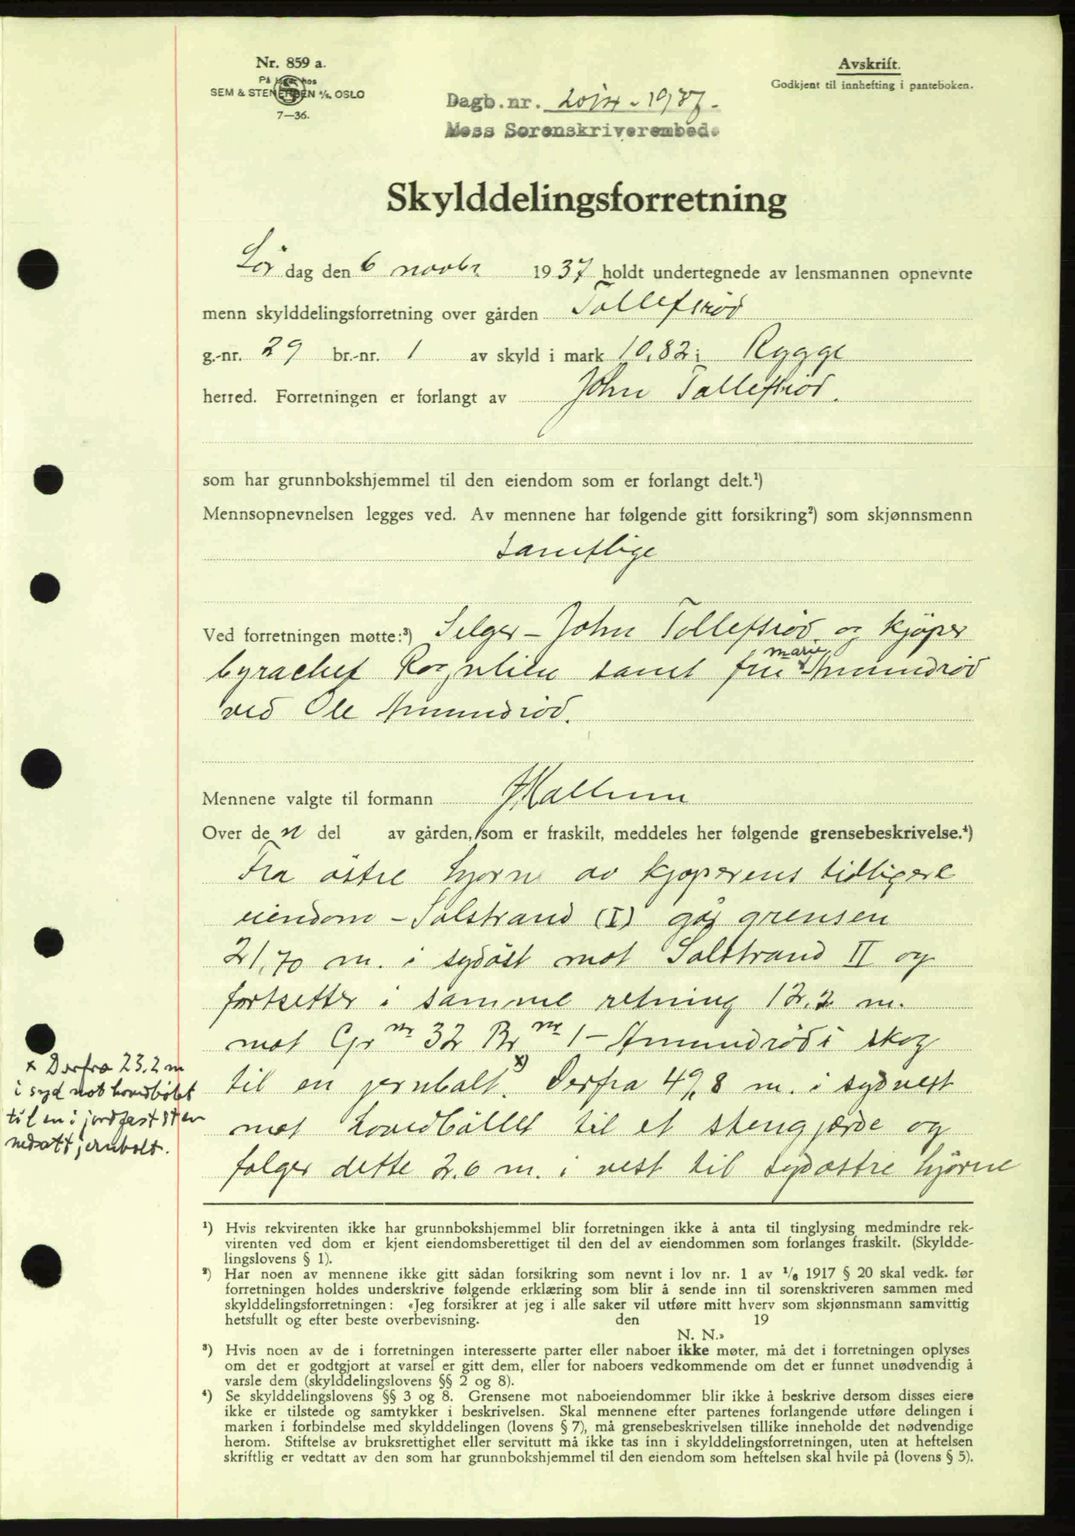 Nr. 859 a.
På lager hos
SEM & STENERSEN A/S. OSLO
7—36.
Avskrift.
Godkjent til innhefting i panteboken.
Dagb.nr. 1937.
Moss Sorenskriverembede
Skylddelingsforretning
Lør dag den 6 novbr 1937 holdt undertegnede av lensmannen opnevnte
menn skylddelingsforretning over gården Tollefsrød
g.-nr. 29 br.-nr. 1 av skyld i mark 10,82 i Rygge
herred. Forretningen er forlangt av John Tollefsrød.
som har grunnbokshjemmel til den eiendom som er forlangt delt.¹)
Mennsopnevnelsen legges ved. Av mennene har følgende gitt forsikring²) som skjønnsmenn
samtlige
Ved forretningen møtte:³) Selger – John Tollefsrød og kjøper
byråchef Rognlien samt fru marie Amundrød
ved Ole Amundrød.
Mennene valgte til formann J Kallum
Over den del av gården, som er fraskilt, meddeles her følgende grensebeskrivelse.⁴)
Fra østre hjørne av kjøperens tidligere
eiendom – Solstrand (I) går grensen
21,70 m. i sydøst mot Solstrand II og
fortsetter i samme retning 12,2 m.
mot Gr nr 32 Br nr 1 – Amundrød i skog
til en jernbolt. x) Derfra 49,8 m. i sydvest
mot hovedbøllet til et stengjærde og
følger dette 2.6 m. i vest til sydøstre hjørne
x Derfra 23.2 m
i syd mot hovedbølet
til en i jordfast sten
nedsatt jernbolt.
¹) Hvis rekvirenten ikke har grunnbokshjemmel blir forretningen ikke å anta til tinglysing medmindre rek-
virenten ved dom er kjent eiendomsberettiget til den del av eiendommen som forlanges fraskilt. (Skyldde-
lingslovens § 1).
²) Har noen av mennene ikke gitt sådan forsikring som nevnt i lov nr. 1 av 1/6 1917 § 20 skal vedk. før
forretningen holdes underskrive følgende erklæring som blir å sende inn til sorenskriveren sammen med
skylddelingsforretningen: «Jeg forsikrer at jeg i alle saker vil utføre mitt hverv som skjønnsmann samvittig
hetsfullt og efter beste overbevisning. den 19
N. N.»
³) Hvis noen av de i forretningen interesserte parter eller naboer ikke møter, må det i forretningen oplyses
om det er godtgjort at varsel er gitt dem, eller for naboers vedkommende om det er funnet unødvendig å
varsle dem (skylddelingslovens §§ 2 og 8).
⁴) Se skylddelingslovens §§ 3 og 8. Grensene mot naboeiendommer blir ikke å beskrive dersom disses eiere
ikke er tilstede og samtykker i beskrivelsen. Skal mennene efter partenes forlangende utføre delingen i
marken i forbindelse med skylddelingen (lovens § 7), må grensebeskrivelsen tillike inneholde det nødvendige
herom. Stiftelse av bruksrettighet eller servitutt må ikke tas inn i skylddelingsforretningen, uten at heftelsen
skriftlig er vedtatt av den som har grunnbokshjemmel til den eiendom som heftelsen skal hvile på (lovens § 5).